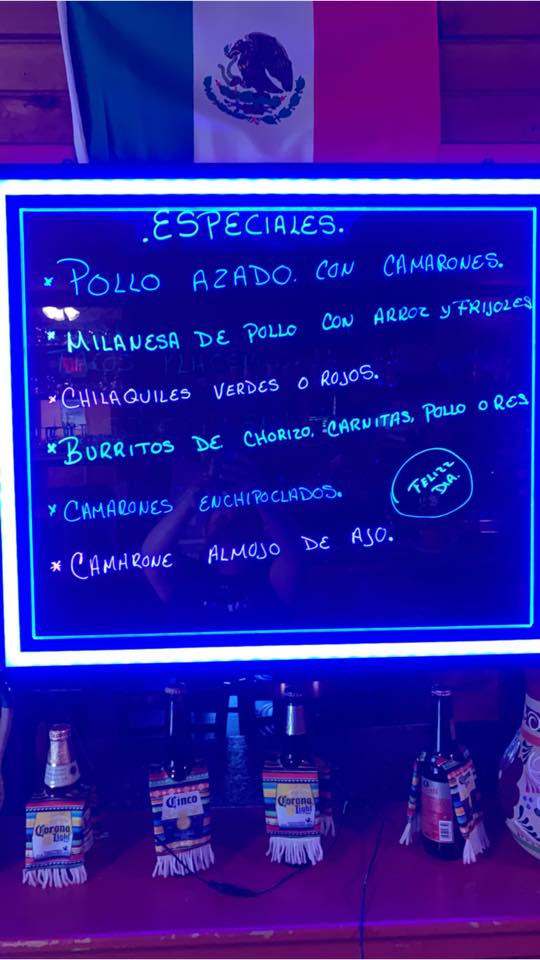 .ESPECIALES.
* POLLO AZADO. CON CAMARONES.
* MILANESA DE POLLO CON ARROZ Y FRIJOLES
* CHILAQUILES VERDES O ROJOS.
* BURRITOS DE CHORIZO. CARNITAS, POLLO O RES
* CAMARONES ENCHIPOCLADOS.
FELIZZ
DIA.
* CAMARONE ALMOJO DE AJO.
Corona
Light
Cinco
Corona
Light